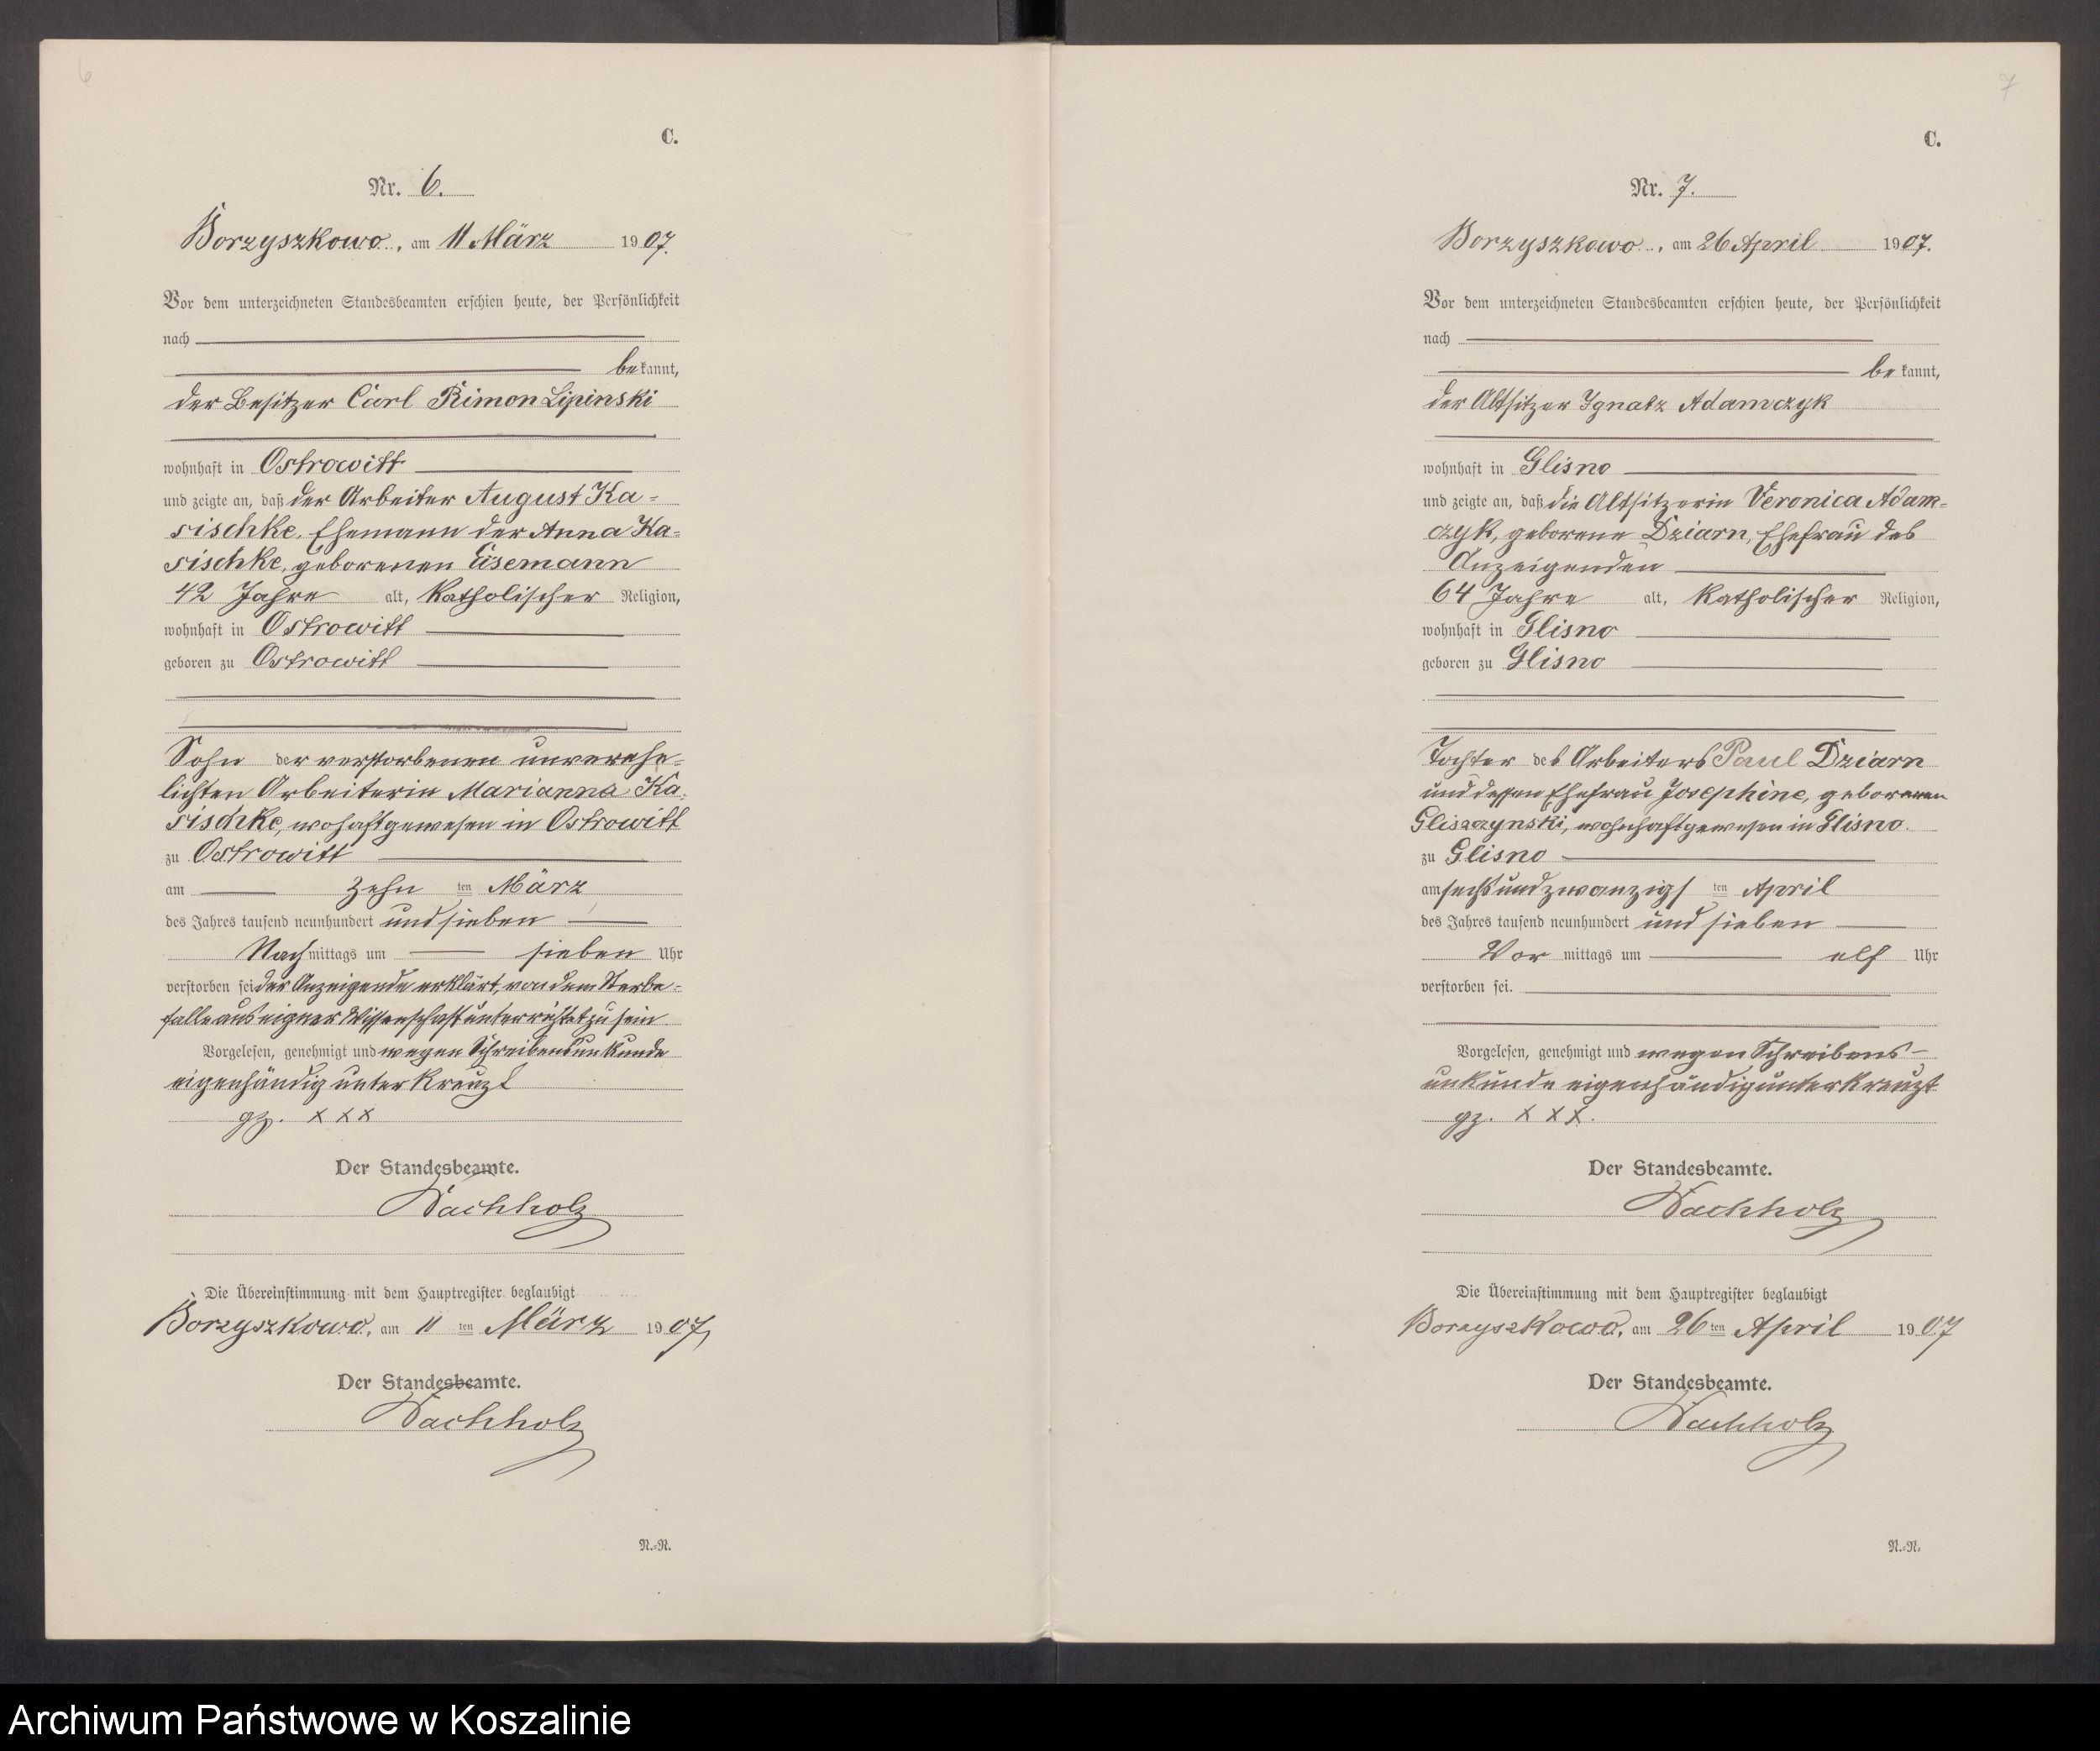 6
C.
Nr. 6.
Borzyszkowo, am 11 März 1907.
Vor dem unterzeichneten Standesbeamten erschien heute, der Persönlichkeit
nach
bekannt,
der Besitzer Carl Rimon Lipinski
wohnhaft in Ostrowitt
und zeigte an, daß der Arbeiter August Ka-
sischke, Ehemann der Anna Ka-
sischke, geborenen Eisemann
42 Jahre alt, katholischer Religion,
wohnhaft in Ostrowitt
geboren zu Ostrowitt
Sohn der verstorbenen unverehe-
lichten Arbeiterin Marianna Ka-
sischke, wohaftgewesen in Ostrowitt
zu Ostrowitt
am zehn ten März
des Jahres tausend neunhundert und sieben
Nachmittags um sieben Uhr
verstorben sei der Anzeigende erklärt, von dem Sterbe-
falle aus eigner Wissenschaft unterrichtet zu sein
Vorgelesen, genehmigt und wegen Schreibensunkunde
eigenhändig unterkreuzt
gz. x x x
Der Standesbeamte.
Wachholz
Die Übereinstimmung mit dem Hauptregister beglaubigt
Borzyszkowo, am 11 ten März 1907
Der Standesbeamte.
Wachholz
N.-N.
7
C.
Nr. 7.
Borzyszkowo, am 26 April 1907.
Vor dem unterzeichneten Standesbeamten erschien heute, der Persönlichkeit
nach
bekannt,
der Altsitzer Ignatz Adamczyk
wohnhaft in Glisno
und zeigte an, daß die Altsitzerin Veronica Adam-
czyk, geborene Dziarn, Ehefrau des
Anzeigenden
64 Jahre alt, katholischer Religion,
wohnhaft in Glisno
geboren zu Glisno
Tochter des Arbeiters Paul Dziarn
und dessen Ehefrau Josephine, geborenen
Glisczynski, wohnhaftgewesen in Glisno.
zu Glisno
am sechsundzwanzigs ten April
des Jahres tausend neunhundert und sieben
Vormittags um elf Uhr
verstorben sei.
Vorgelesen, genehmigt und wegen Schreibens-
unkunde eigenhändig unterkreuzt
gz. x x x.
Der Standesbeamte.
Wachholz
Die Übereinstimmung mit dem Hauptregister beglaubigt
Borzyszkowo, am 26 ten April 1907
Der Standesbeamte.
Wachholz
N.-N.
Archiwum Państwowe w Koszalinie